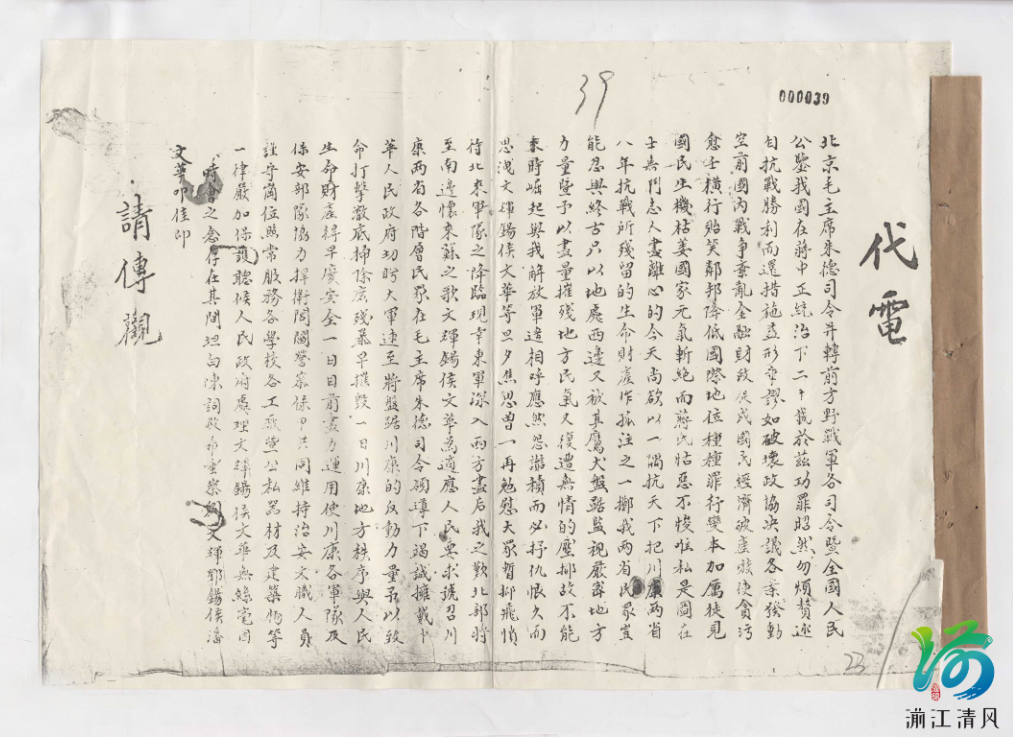 000039
39
代電
北京毛主席朱德司令并轉前方野戰軍各司令暨全國人民
公鑒我國在蔣中正統治下二十載於茲功罪昭然勿煩贅述
自抗戰勝利而還措施益形乖謬如破壞政協決議各案發動
空前國內戰爭紊亂金融財政促成國民經濟破產嗾使貪污
僉壬橫行貽笑鄰邦降低國際地位種種罪行變本加厲徒見
國民生機枯萎國家元氣斬絕而蔣氏怙惡不悛唯私是圖在
士無鬥志人盡離心的今天尚欲以一隅抗天下把川康兩省
八年抗戰所殘留的生命財產作孤注之一擲我兩省民衆豈
能忍與終古只以地處西邊又被其鷹犬盤踞監視嚴密地方
力量暨予以盡量摧殘地方民氣又復遭無情的壓抑故不能
乘時崛起與我解放軍遙相呼應然怨激積而必抒仇恨久而
思洩文輝錫侯文華等旦夕焦思曾一再勉慰大眾暫抑飛悄
待北來軍隊之降臨現幸東軍深入西方盡后我之歎北部將
至南邊懷來蘇之歌文輝錫侯文華為適應人民要求號召川
康兩省各階層民衆在毛主席朱德司令領導下竭誠擁戴中
華人民政府切盼大軍速至將盤踞川康的反動力量予以致
命打擊澈底掃除庶殘暴早摧毀一日川康地方秩序與人民
生命財產得早慶安全一日目前盡力運用使川康各軍隊及
保安部隊協力捍衛閭閻警察保甲共同維持治安文職人員
謹守崗位照常服務各學校各工廠暨公私器材及建築物等
一律嚴加保護聽候人民政府處理文輝錫侯文華無絲毫因
時之念存在其間坦白陳詞敬希垂察劉文輝鄧錫侯潘
文華叩佳印
請傳觀
23
湔江清风